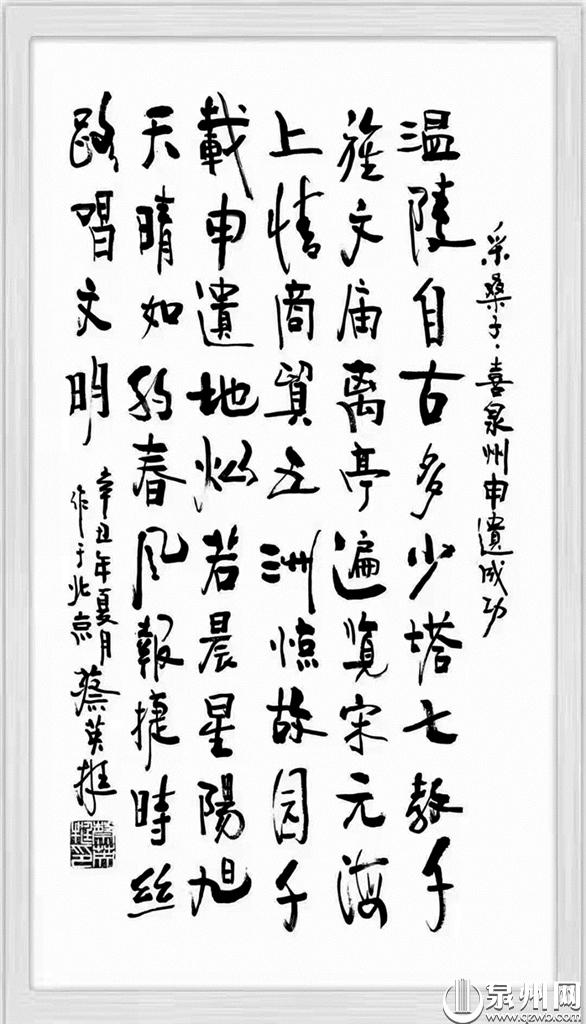 采桑子·喜泉州申遺成功
温陵自古多少塔七教千
旌文庙离亭遍览宋元海
上情商貿五洲惊故园千
載申遺地灿若晨星陽旭
天晴如约春风報捷時丝
路唱文明
辛丑年夏月
作于北京
蔡英挺
泉州网
www.qzwb.com